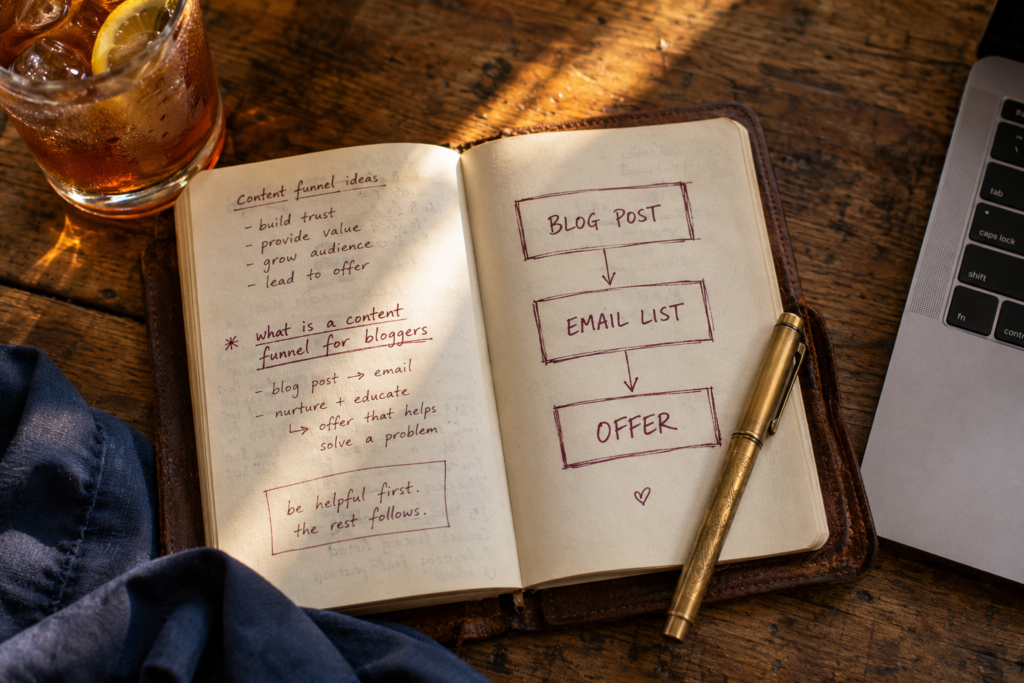 Content funnel ideas
- build trust
- provide value
- grow audience
- lead to offer
* what is a content
funnel for bloggers
- blog post → email
- nurture + educate
↳ offer that helps
solve a problem
be helpful first.
the rest follows.
BLOG POST
EMAIL LIST
OFFER
tab
caps lock
shift
fn